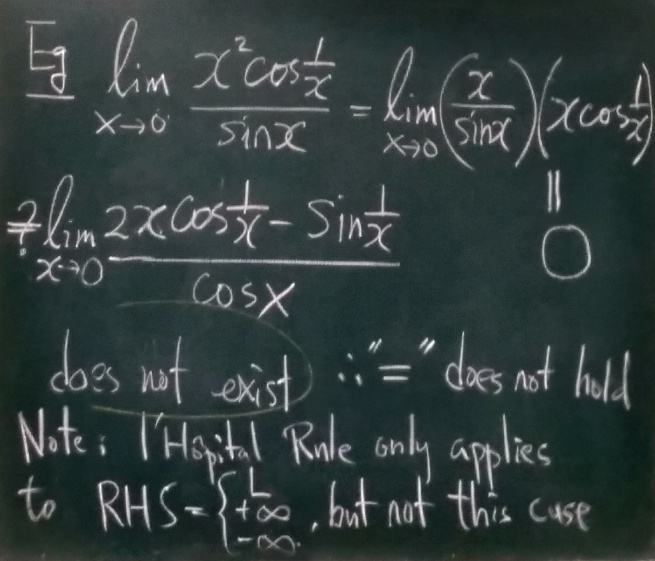 Eg lim x→0 x²cos 1/x / sinx = lim x→0 (x/sinx)(xcos 1/x)
= 0
≟ lim x→0 2xcos 1/x - Sin 1/x / cosx
does not exist ∴ "=" does not hold
Note: l'Hôpital Rule only applies
to RHS = { L +∞ -∞. , but not this case